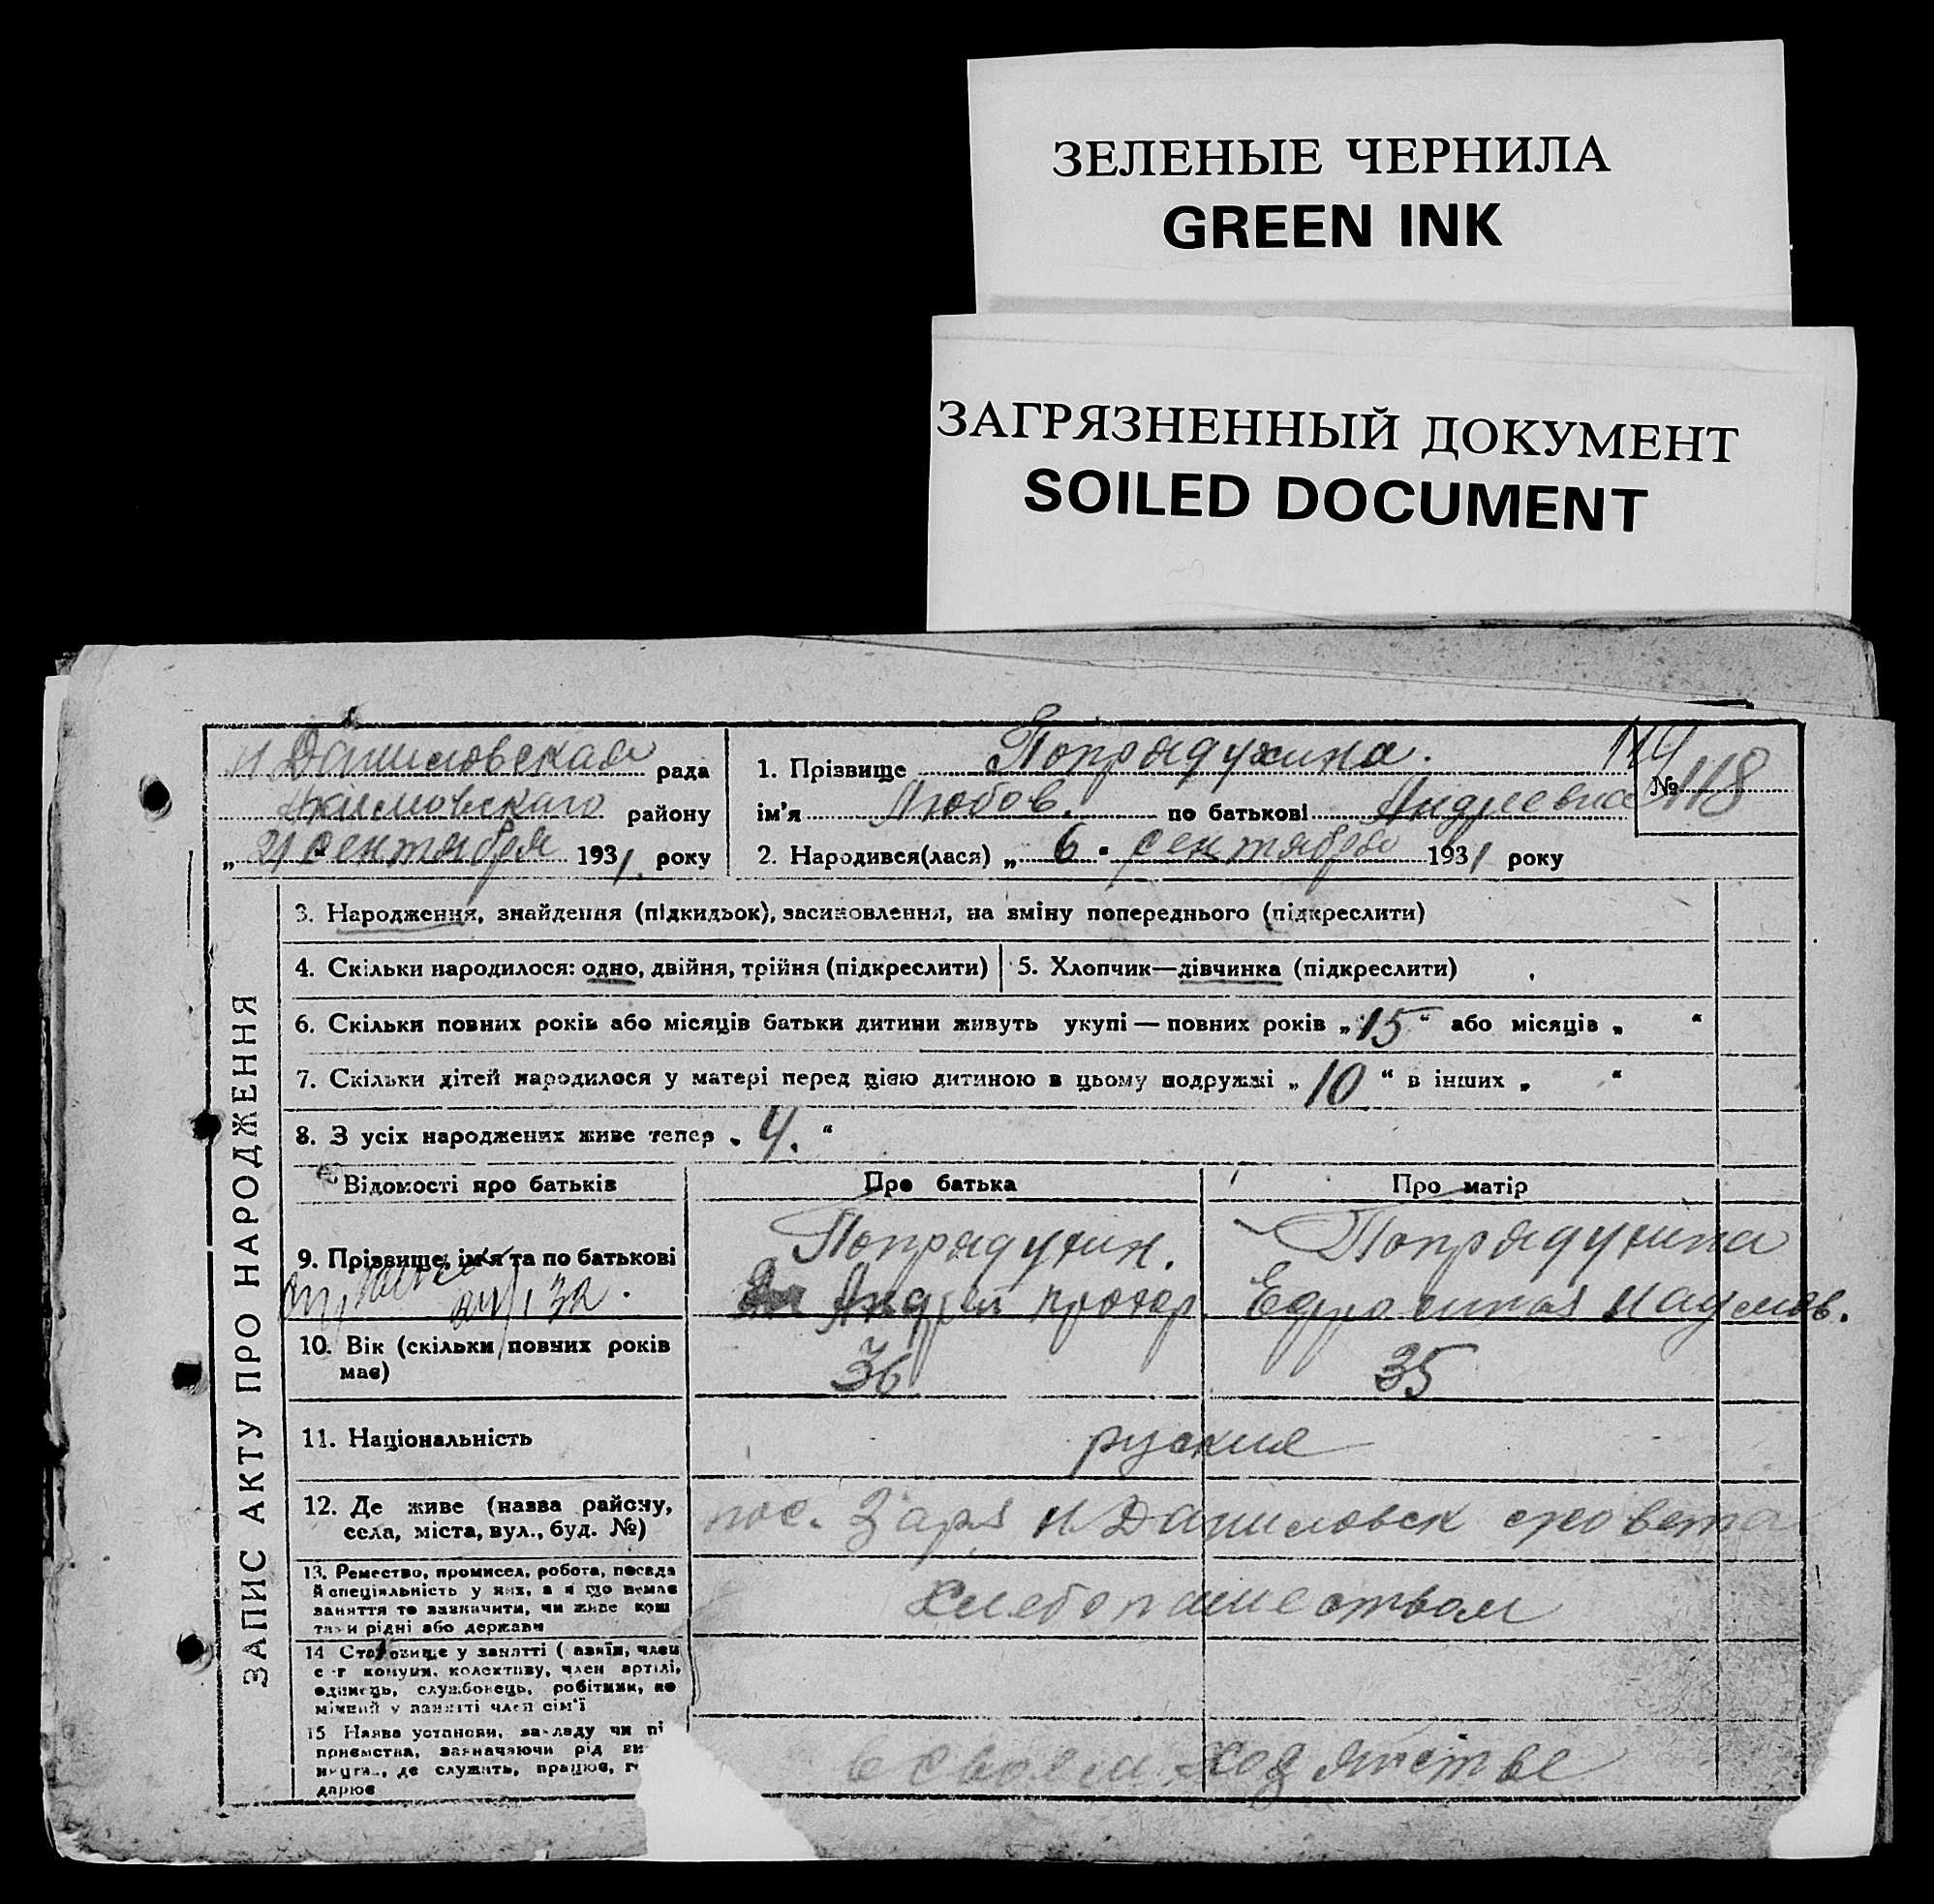 ЗЕЛЕНЫЕ ЧЕРНИЛА
GREEN INK
ЗАГРЯЗНЕННЫЙ ДОКУМЕНТ
SOILED DOCUMENT
ЗАПИС АКТУ ПРО НАРОДЖЕННЯ
Н Даниловская рада
району
„ 21 сентября 1931. року
114
№ 118
1. Прізвище Попрядухина.
ім'я Любов. по батькові Андреевна
2. Народився(лася) „ 6 " сентября 1931 року
3. Народження, знайдення (підкидьок), засиновлення, на зміну попереднього (підкреслити)
4. Скільки народилося: одно, двійня, трійня (підкреслити)
5. Хлопчик—дівчинка (підкреслити)
6. Скільки повних років або місяців батьки дитини живуть укупі — повних років „ 15 “ або місяців „ “
7. Скільки дітей народилося у матері перед цією дитиною в цьому подружжі „ 10 “ в інших „ “
8. З усіх народжених живе тепер „ 4. “
Відомості про батьків
Про батька
Про матір
9. Прізвище, ім'я та по батькові
Попрядухин.
Андрей прохор
Попрядухина
Ефросиния Наумов.
10. Вік (скільки повних років має)
36
35
11. Національність
руские
12. Де живе (назва району, села, міста, вул., буд. №)
пос. Заря Н. Даниловск
13. Ремество, промисел, робота, посада
й спеціяльність у них, а якщо немає
заняття то зазначити, чи живе кош
тами рідні або держави
хлебопашеством
14 Становище у занятті ( азяїн, член
с-г комуни, колективу, член артілі,
одинець, службовець, робітник, по
мічний у занятті член сім'ї
15 Назва установи, закладу чи пі
приємства, зазначаючи рід ви
де служить, працює, г
дарює
в своем хозяйстве